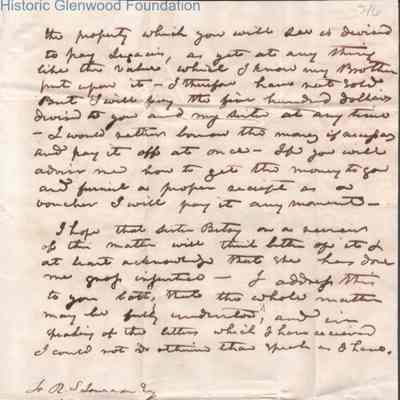 Historic Glenwood Foundation
the property which you will see is devised
to pay Legacies, as yet at any thing
like the value, which I know my Brother
put upon it – I therefore have not sold
But I will pay the five hundred dollars
devised to you and my sister at any time
– I would rather borrow the money if necessary
and pay it off at once – If you will
advise me how to get the money to you
and furnish a proper receipt as a
voucher I will pay it any moment –
I hope that sister Betsy on a review
of this matter will think better of it &
at least acknowledge that she has done
me gross injustice – I address this
to you both, that the whole matter
may be fully understood, and in
speaking of the letters which I have received
I could not do otherwise than speak as I have.
To R. S. Esq